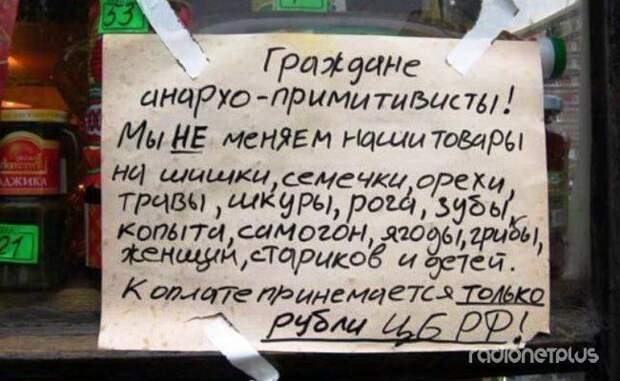 53
Граждане
анархо-примитивисты!
Мы НЕ меняем наши товары
на шишки, семечки, орехи,
травы, шкуры, рога, зубы,
копыта, самогон, ягоды, грибы,
женщин, стариков и детей.
К оплате принемается только
рубли ЦБ РФ!
АДЖИКА
21
radionetplus